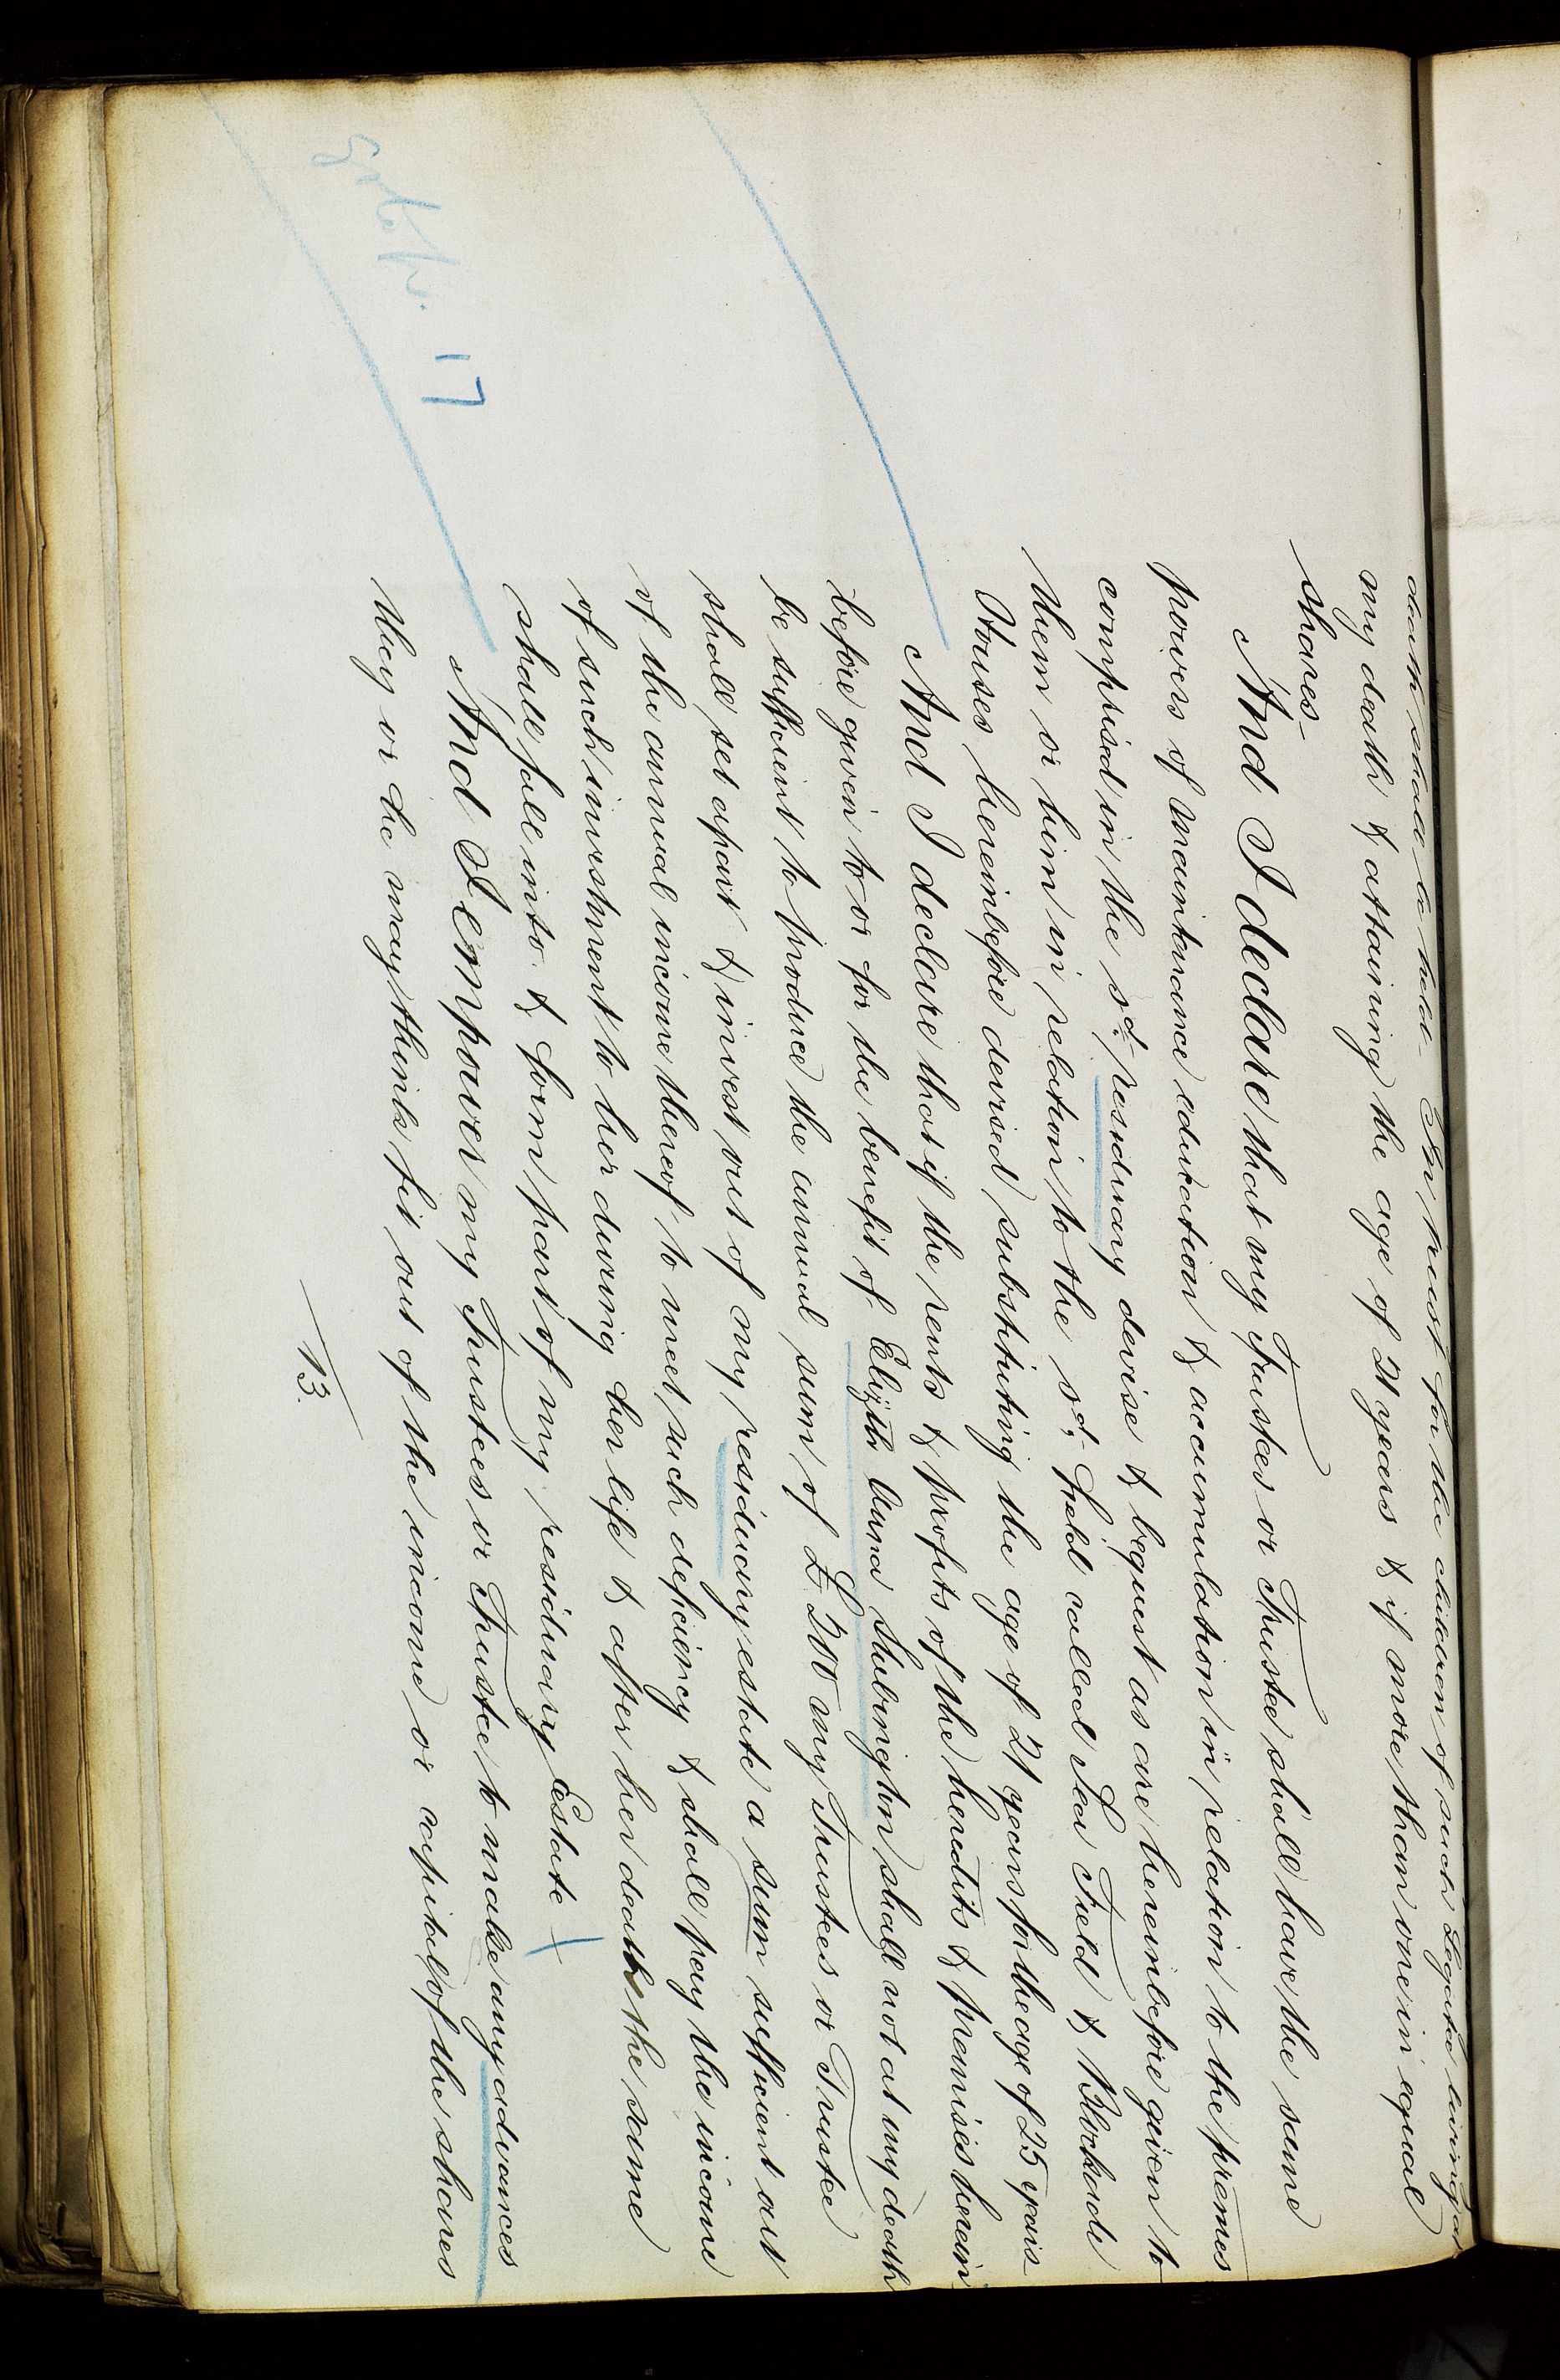 death shall be held In trust for the children of such Legatee living at
my death & attaining the age of 21 years & if more than one in equal
shares –
And I declare that my Trustees or Trustee shall have the same
powers of maintenance education & accumulation in relation to the premes
comprised in the sd. residuary devise & bequest as are hereinbefore given to
them or him in relation to the sd. Field called Sea Field & Blockade
Houses hereinbefore devised substituting the age of 21 years for the age of 25 years
And I declare that if the rents & profits of the heredits & premises herein
before given to or for the benefit of Elizth Anna Stubington shall not at my death
be sufficient to produce the annual sum of £200 my Trustees or Trustee
shall set apart & invest out of my residuary estate a sum sufficient out
of the annual income thereof to meet such deficiency & shall pay the income
of such investment to her during her life & after her death the same
shall fall into & form part of my residuary Estate
And I empower my Trustees or Trustee to make any advances
they or he may think fit out of the income or capital of the shares
13.
17